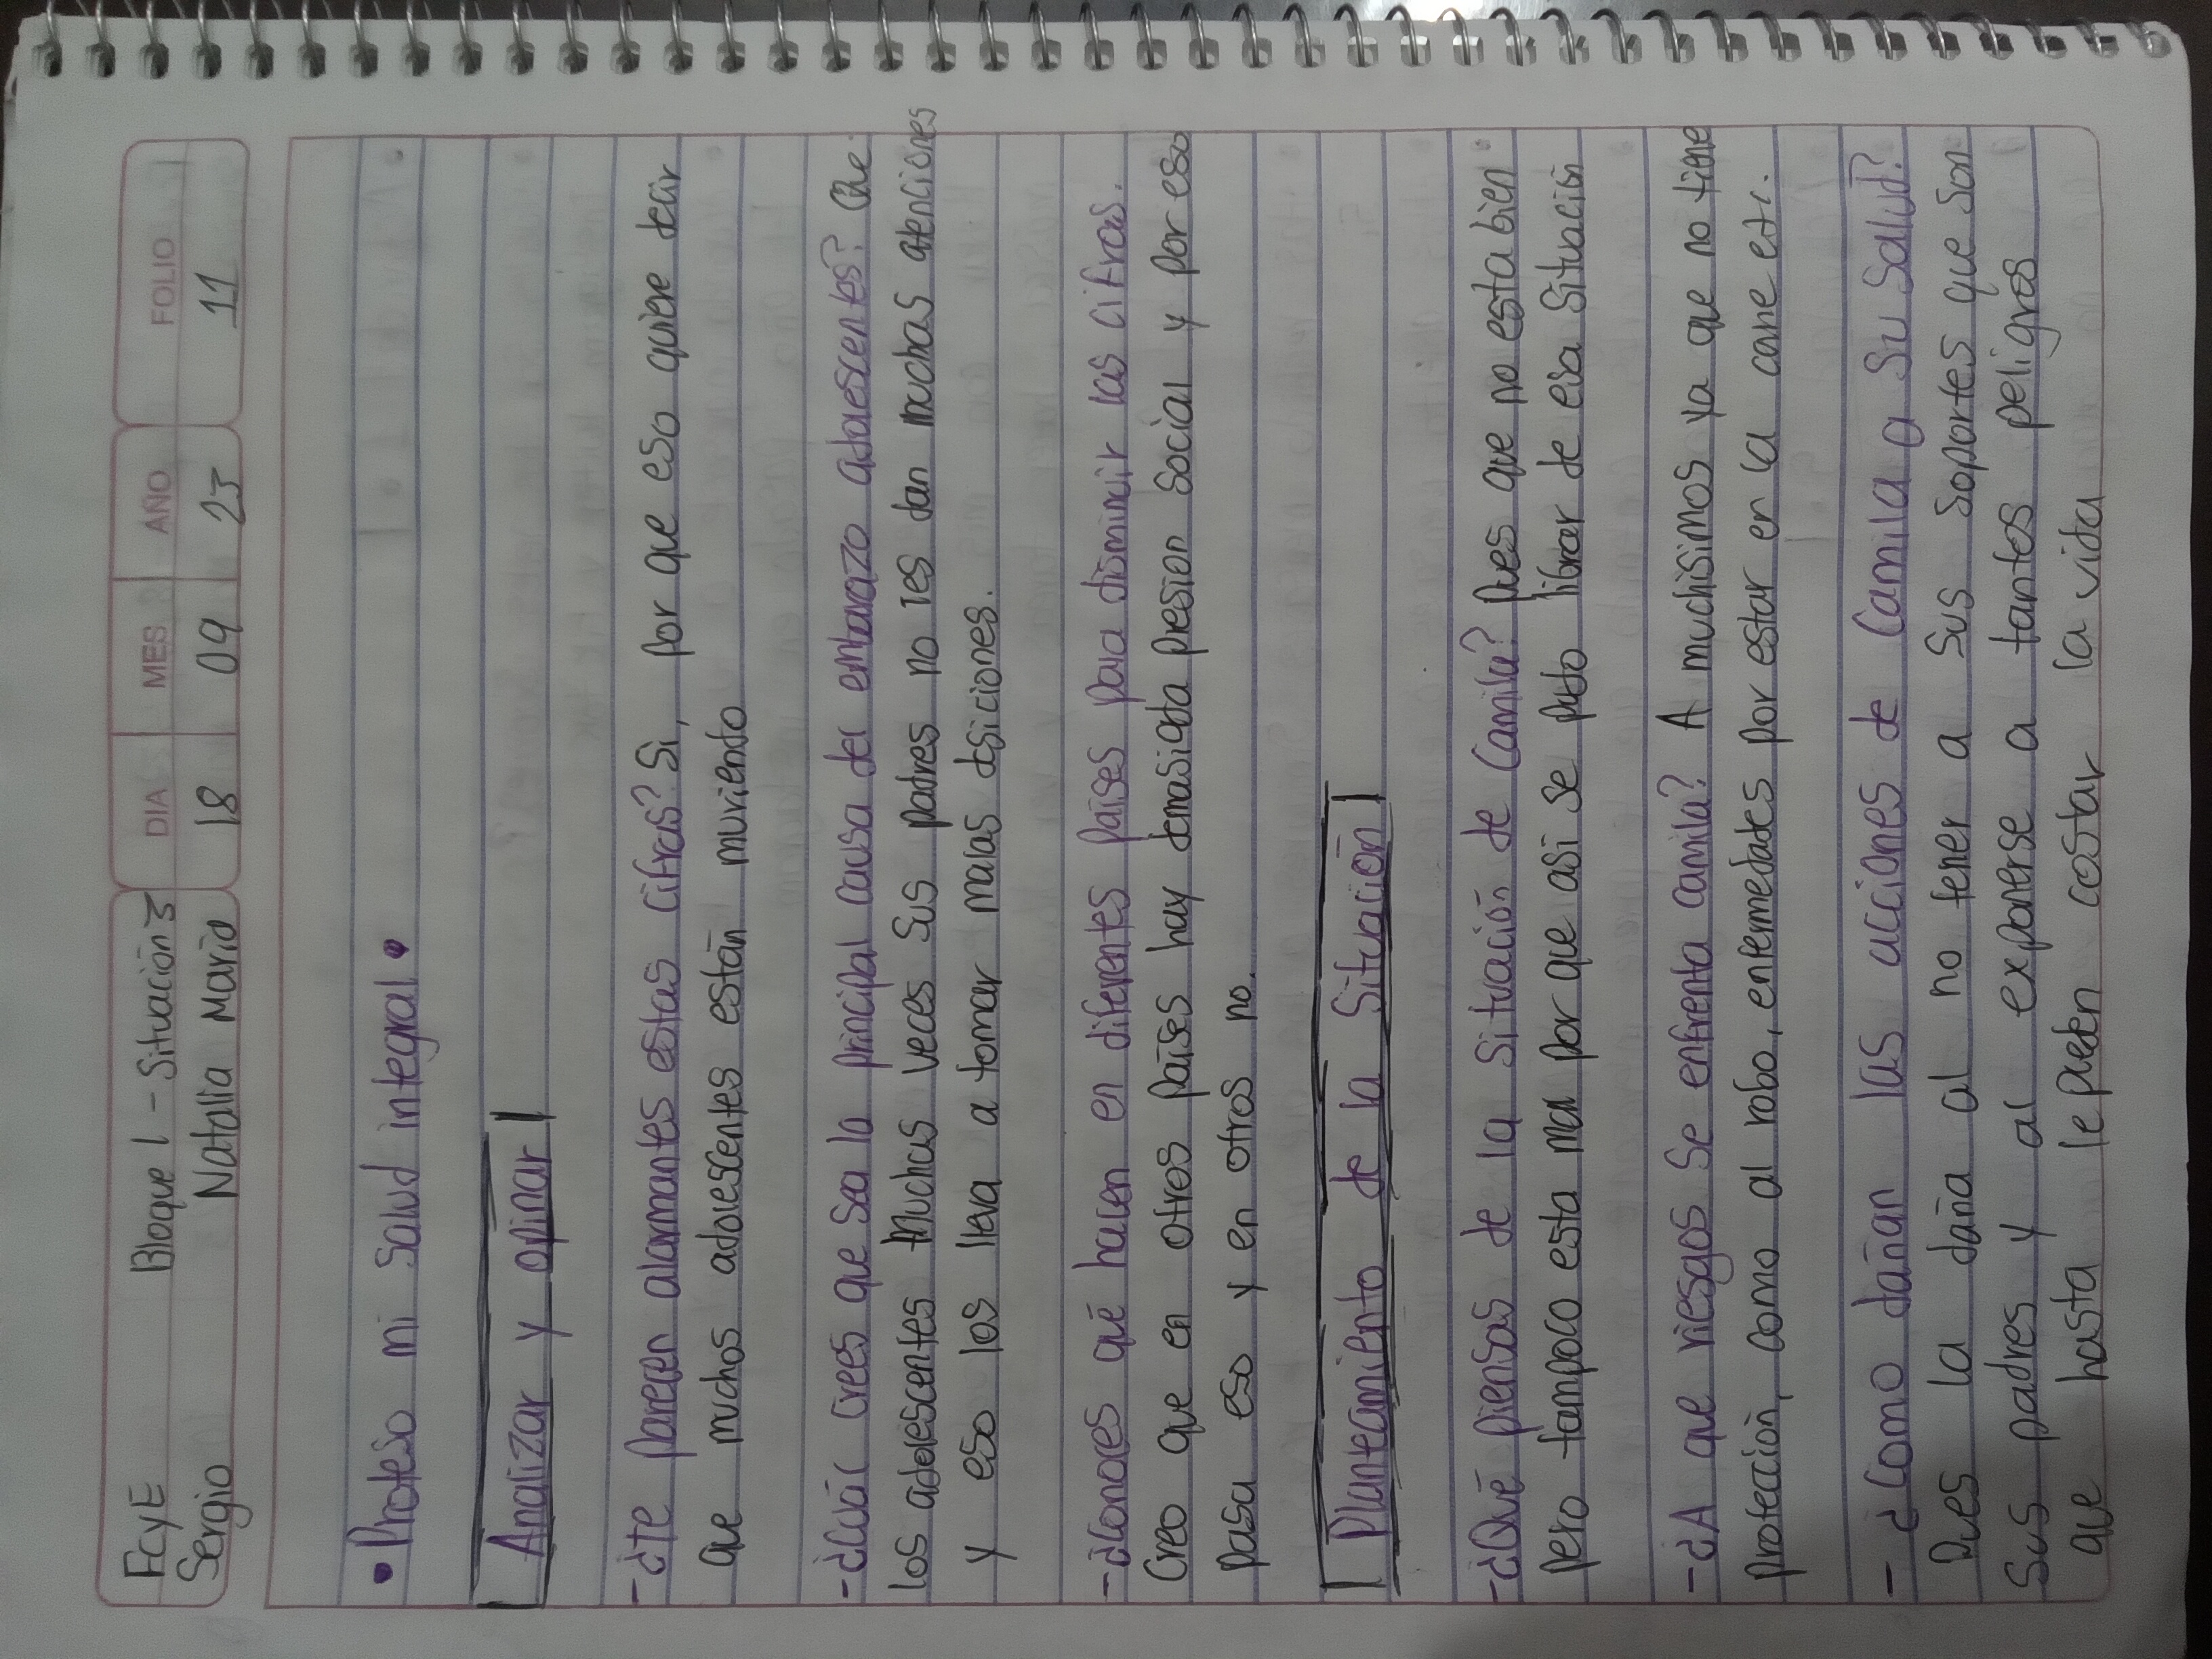 FCyE Bloque 1 - Situación 3
Sergio Natalia Mario
DIA MES AÑO FOLIO
18 09 23 11
• Proteso mi salud integral •
Analizar y opinar
- ¿Te parecen alarmantes estas cifras? Si, por que eso quiere decir
que muchos adolescentes están muriendo
- ¿Cuál crees que sea la principal causa del embarazo adolescentes? Que
los adolescentes Muchas veces sus padres no les dan muchas atenciones
y eso los lleva a tomar malas desiciones.
- ¿Conoces qué hacen en diferentes países para disminuir las cifras.
Creo que en otros países hay demasiada presion social y por eso
pasa eso y en otros no.
Planteamiento de la Situación
- ¿Qué piensas de la situación de Camila? Pues que no esta bien
pero tampoco esta mal por que asi se pudo librar de esa situación
- ¿A que riesgos se enfrenta camila? A muchisimos ya que no tiene
protección, como al robo, enfermedades por estar en la calle etc.
- ¿Como dañan las acciones de Camila a su salud?
Pues la daña al no tener a sus soportes que son
sus padres y al exponerse a tantos peligros
que hasta le pueden costar la vida